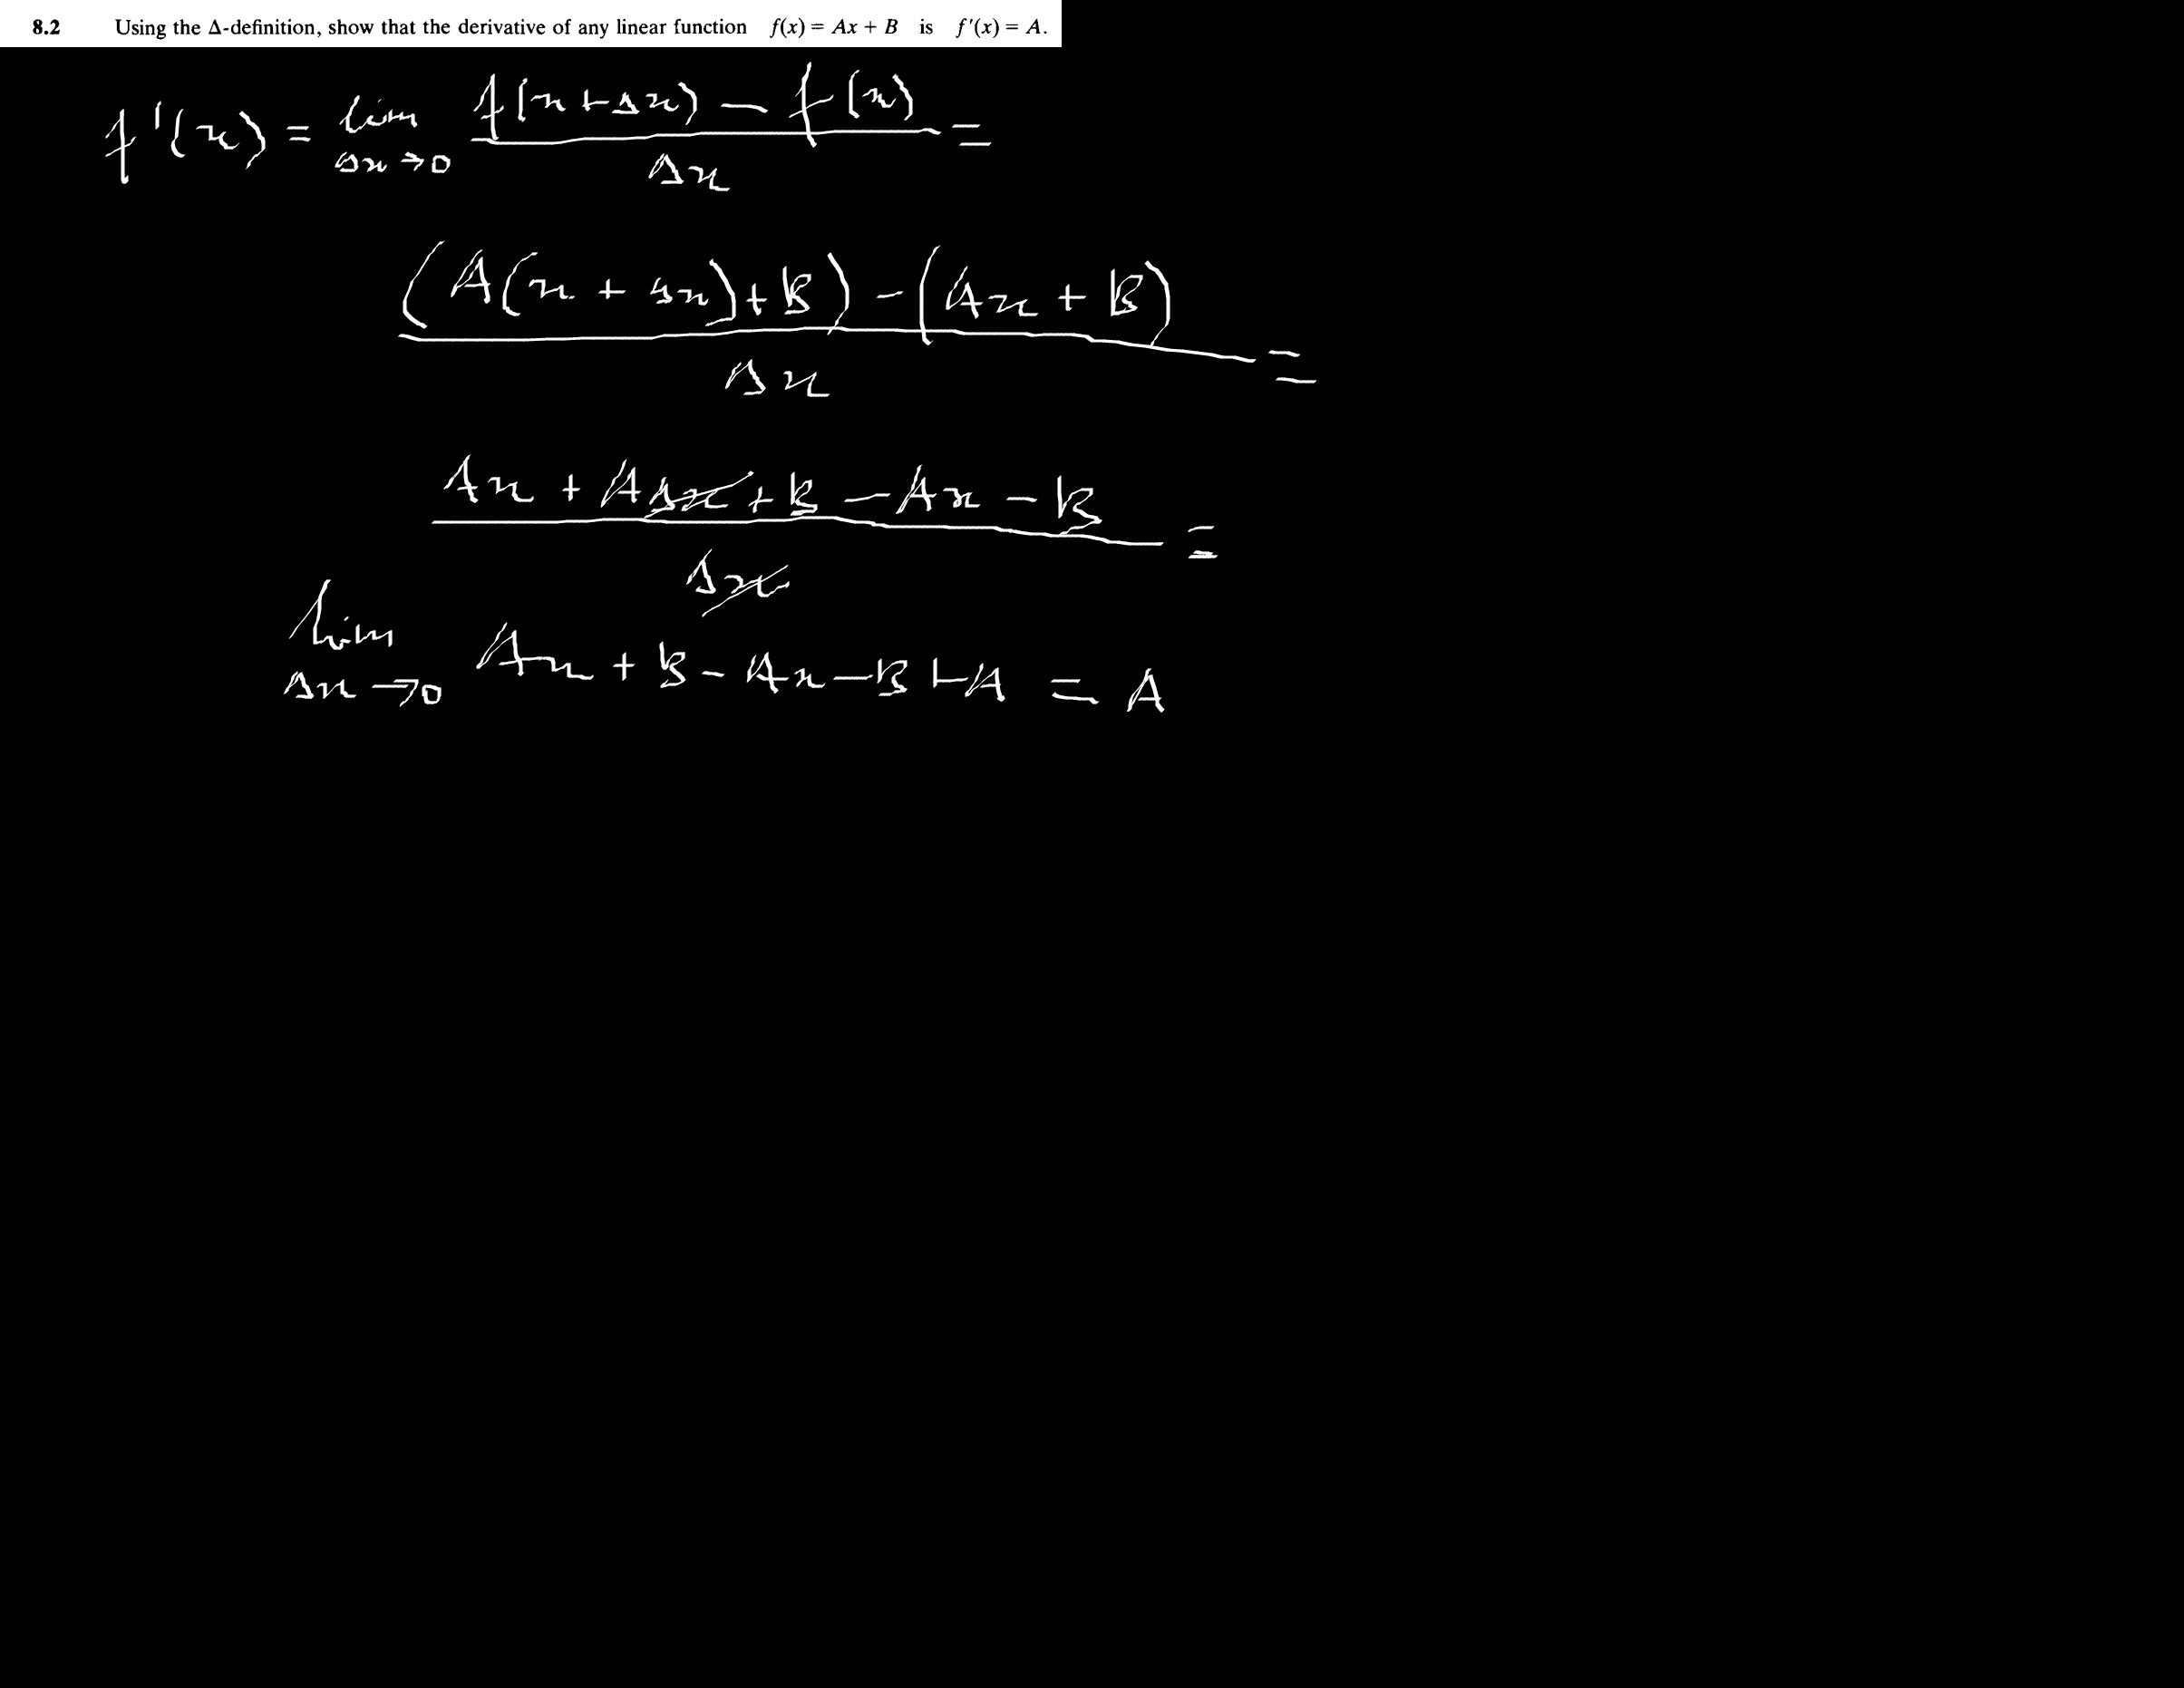 8.2 Using the Δ-definition, show that the derivative of any linear function f(x) = Ax + B is f'(x) = A.
f'(x) = lim Δx→0 (f(x+Δx) − f(x))/Δx =
((A(x + Δx)+B) − (Ax + B))/Δx =
(Ax + AΔx + B − Ax − B)/Δx =
lim Δx→0 Ax + B − Ax − B + A = A